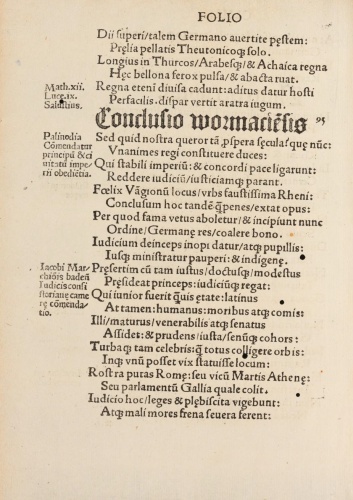 FOLIO
Dii superi/talem Germano auertite pęstem:
Pręlia pellatis Theutonicoq̃ solo.
Longius in Thurcos/Arabesq̃/& Achaica regna
Hęc bellona ferox pulsa/& abacta ruat.
Math.xii.
Luce.ix.
Salustius.
Regna etenĩ diuisa cadunt: aditus datur hosti
Perfacilis. dispar vertit aratra iugum.
Conclusio wormaciẽsis
Palinodia
Cõmendatur
principũ & ci
uitatũ impe-
rii obediẽtia.
Sed quid nostra queror tã ꝓspera sęcula? que nũc:
Vnanimes regi constituere duces:
Qui stabili imperiũ/& concordi pace ligarunt:
Reddere iudiciũ/iusticiamq̃ parant.
Fœlix Vãgionũ locus/vrbs faustissima Rheni:
Conclusum hoc tandẽ q̃ penes/extat opus:
Per quod fama vetus aboletur/& incipiunt nunc
Ordine/Germanę res/coalere bono.
Iudicium deinceps inopi datur/atq̃ pupillis:
Iusq̃ ministratur pauperi/& indigenę.
Iacobi Mar-
chiõis badeñ
Iudicis consi
storianę came
rę cõmenda-
tio.
Pręsertim cũ tam iustus/doctusq̃/modestus
Pręsideat princeps: iudiciũq̃ regat:
Qui iunior fuerit quis ętate: latinus
Attamen: humanus: moribus atq̃ comis:
Illi/maturus/venerabilis atq̃ senatus
Assidet: & prudens/iusta/senũq̃ cohors:
Turbaq̃ tam celebris: q̃ totus colligere orbis:
Inq̃ vnũ posset vix statuisse locum:
Rostra putas Romę: seu vicũ Martis Athenę:
Seu parlamentũ Gallia quale colit.
Iudicio hoc/leges & plębiscita vigebunt:
Atq̃ mali mores frena seuera ferent: